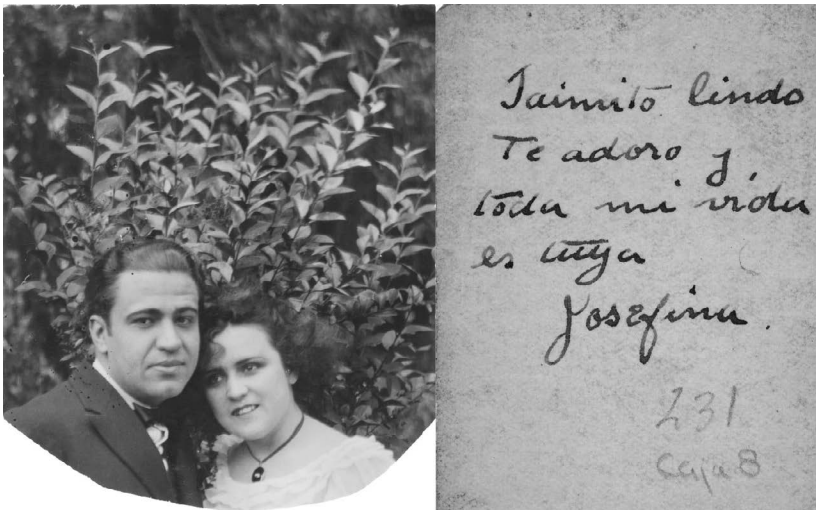 Jaimito lindo
Te adoro y
toda mi vida
es tuya
Josefina.
231
Caja 8